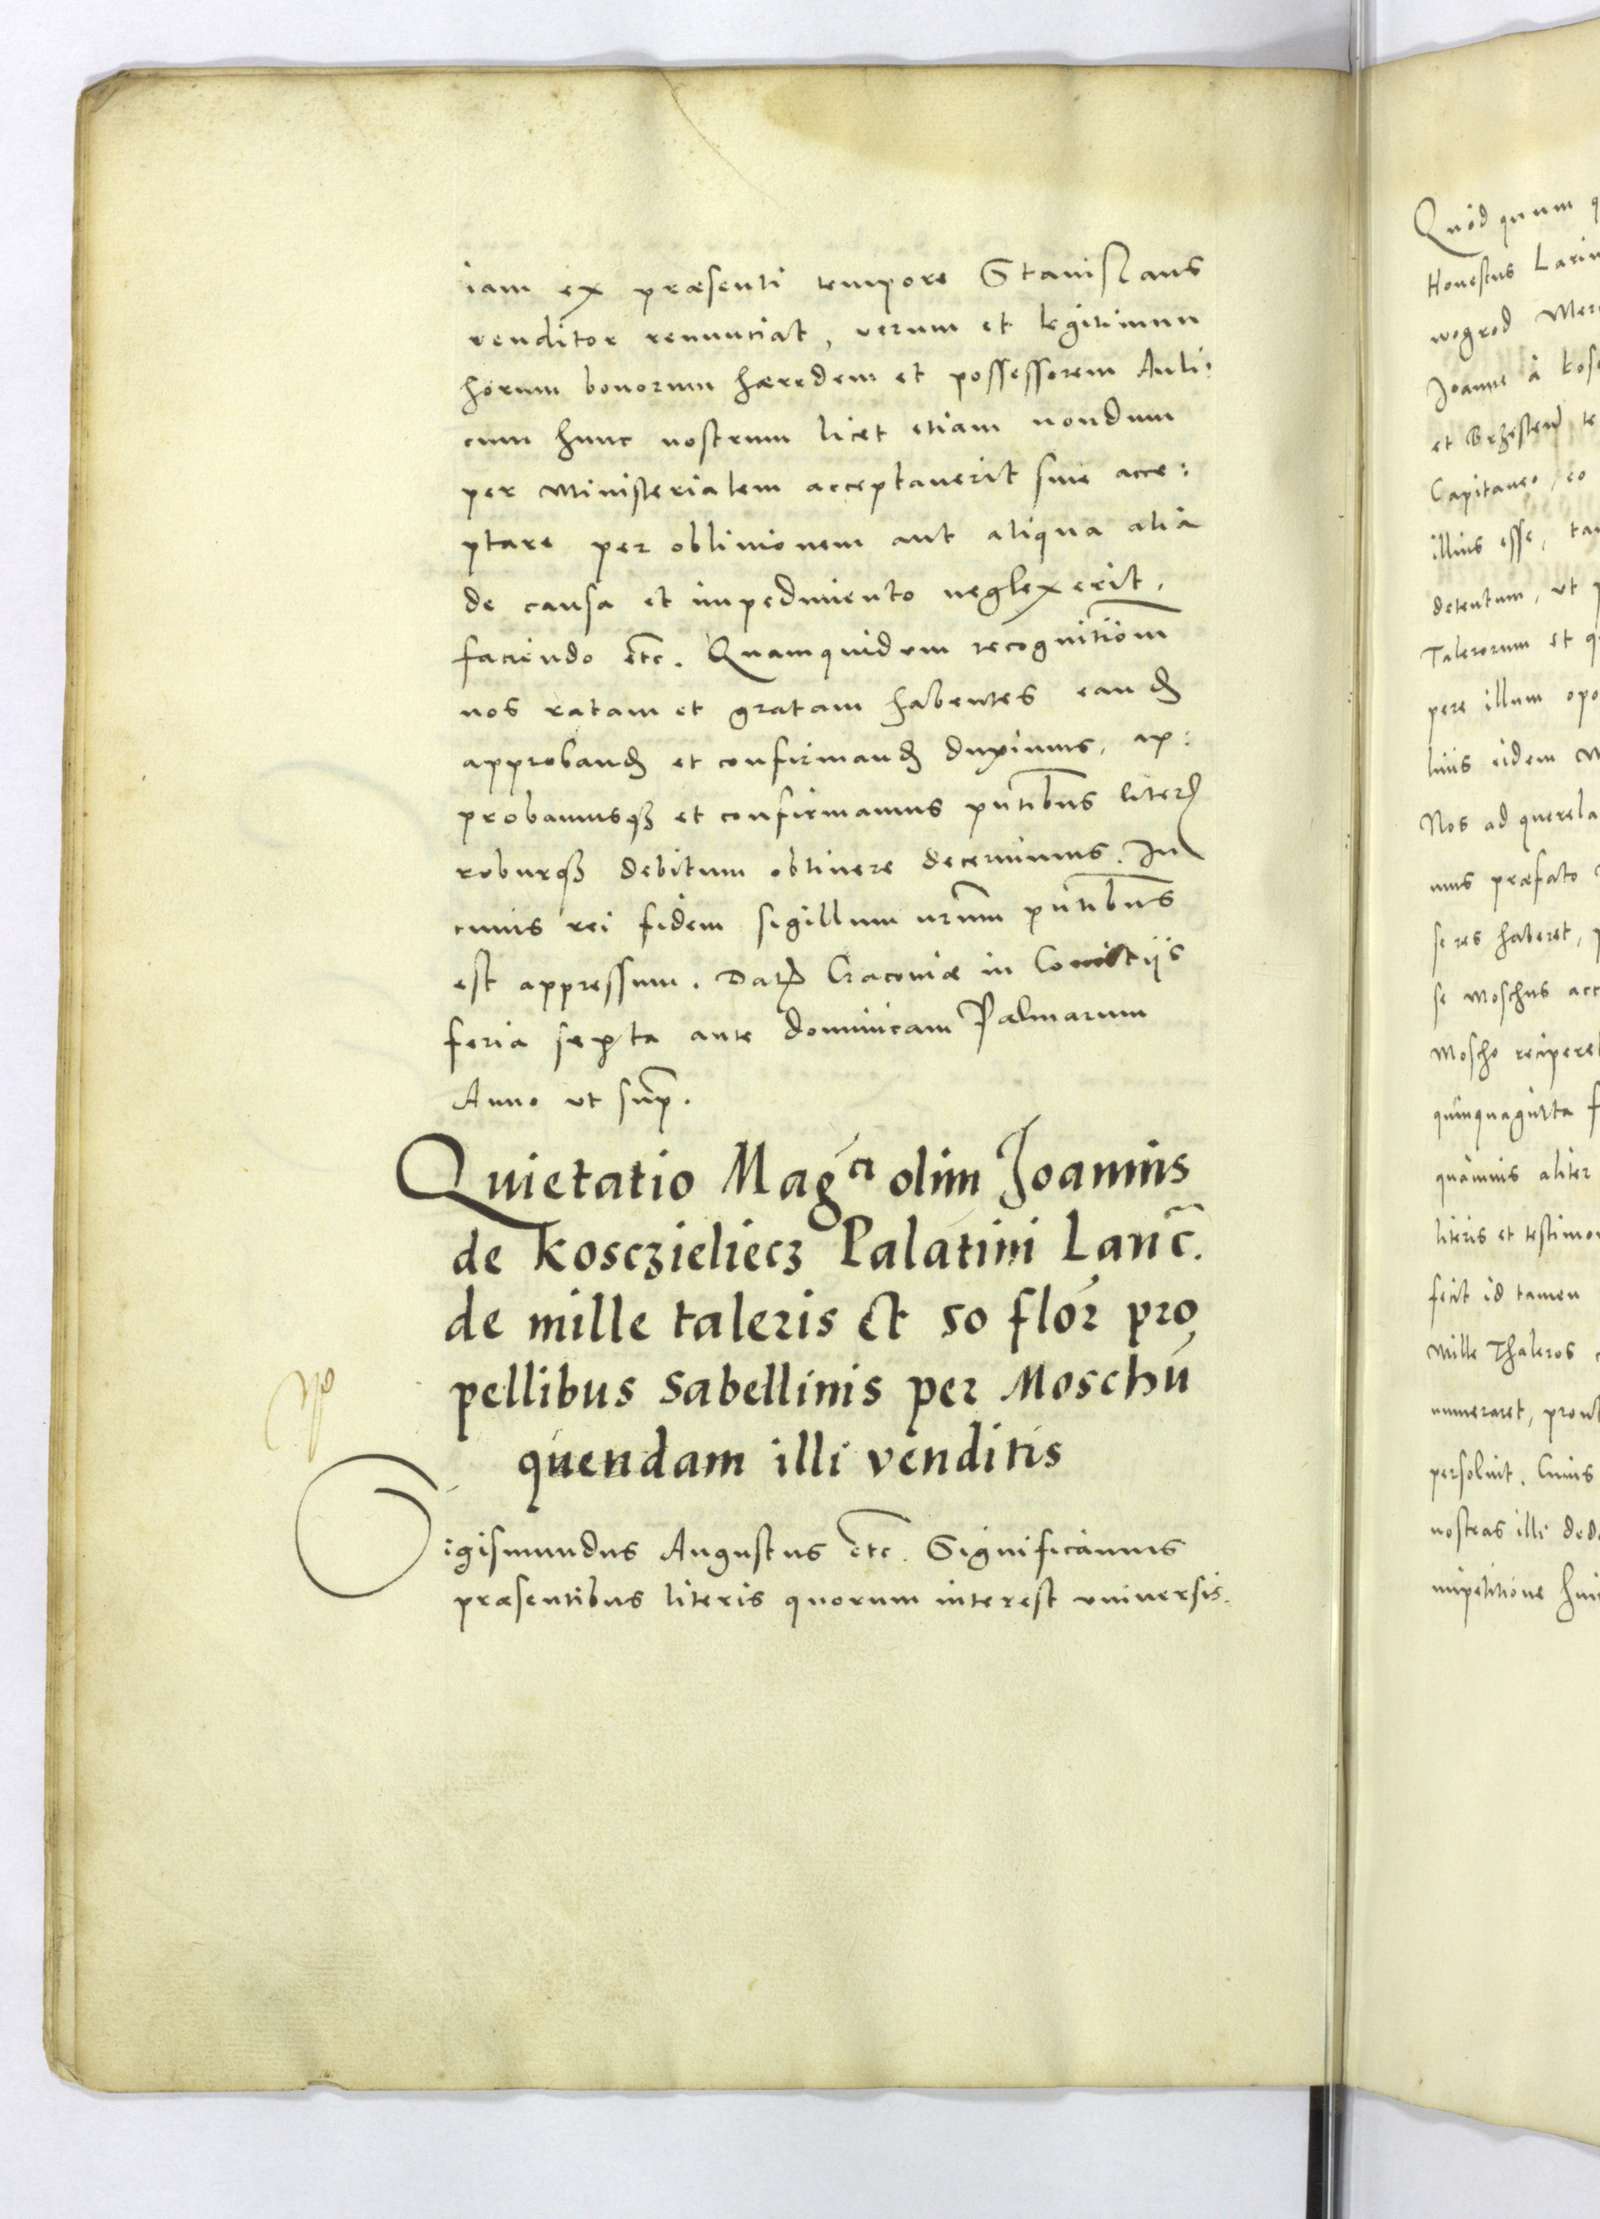 iam ex præsenti tempore Stanislaus
venditor renunciat, verum et legitimum
horum bonorum hæredem et possessorem Auli:
cum hunc nostrum licet etiam nondum
per Ministerialem acceptauerit siue acce:
ptare per obliuionem aut aliqua alia
de causa et impedimento neglexerit,
faciendo etc. Quamquidem recognitiom̄
nos ratam et gratam habentes eand
approband et confirmand duximus, ap:
probamusqꝫ et confirmamus pn̄tibus liter
roburqꝫ debitum obtinere decernimus. In
cuius rei fidem sigillum nrum̄ pn̄tibus
est appressum. Dat Cracouiæ in Comitijs
feria sexta ante dominicam Palmarum
Anno vt sup̄.
Quietatio Mag^ci olim Joannis
de Kosczieliecz Palatini Lanc̄.
de mille taleris et 50 flor pro
pellibus sabellinis per Moschū
quendam illi venditis
Sigismundus Augustus etc. Significamus
præsentibus literis quorum interest vniuersis.
Quod quum
Honestus
wogrod Mer
Joanne à Kos
et
Capitaneo, eo
illius esse, ta
detentum, vt
Talerorum et q
pere illum opo
lius eidem
Nos ad querela
mus præfato
se res haberet,
se Moschus acc
Moscho recipere
quinquaginta f
quamuis aliter
literis et testimo
ferit id tamen
Mille Thaleros
numeraret, prout
persoluit. Cuius
nostras illi ded
impetitione hui